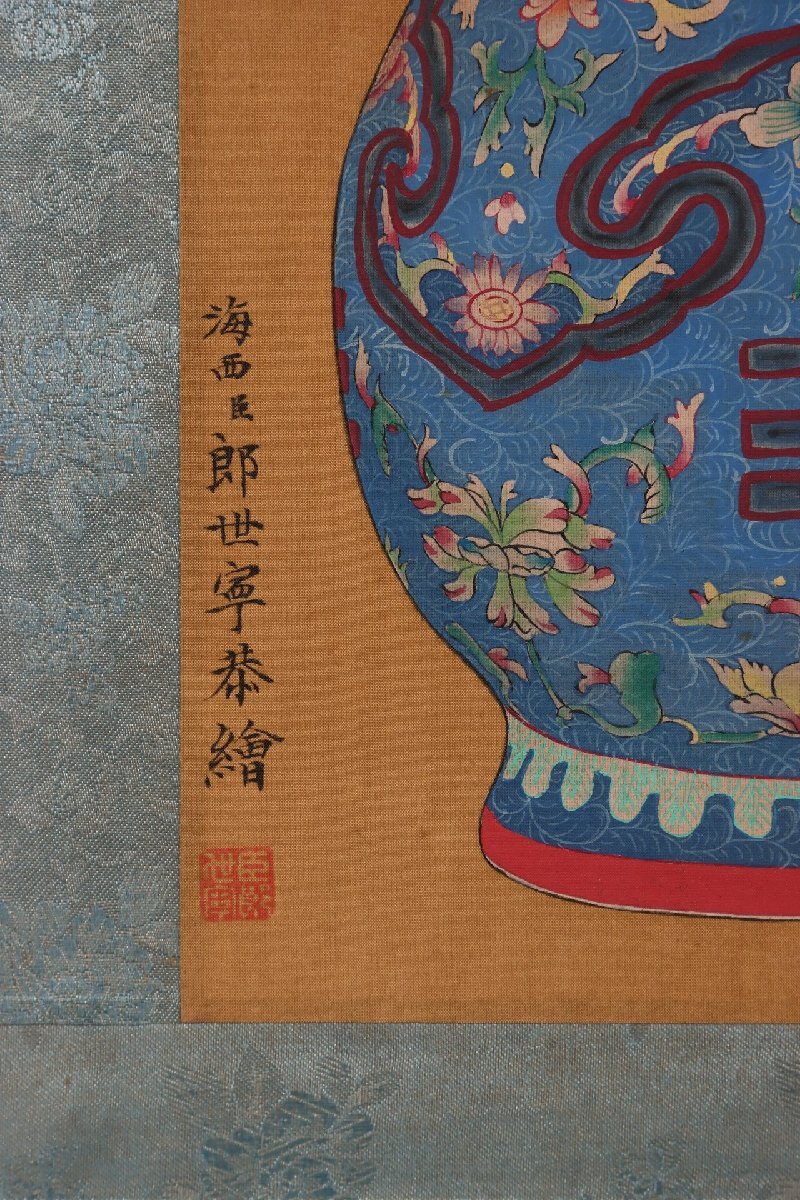 海西臣郎世寧恭繪
臣郎世寧